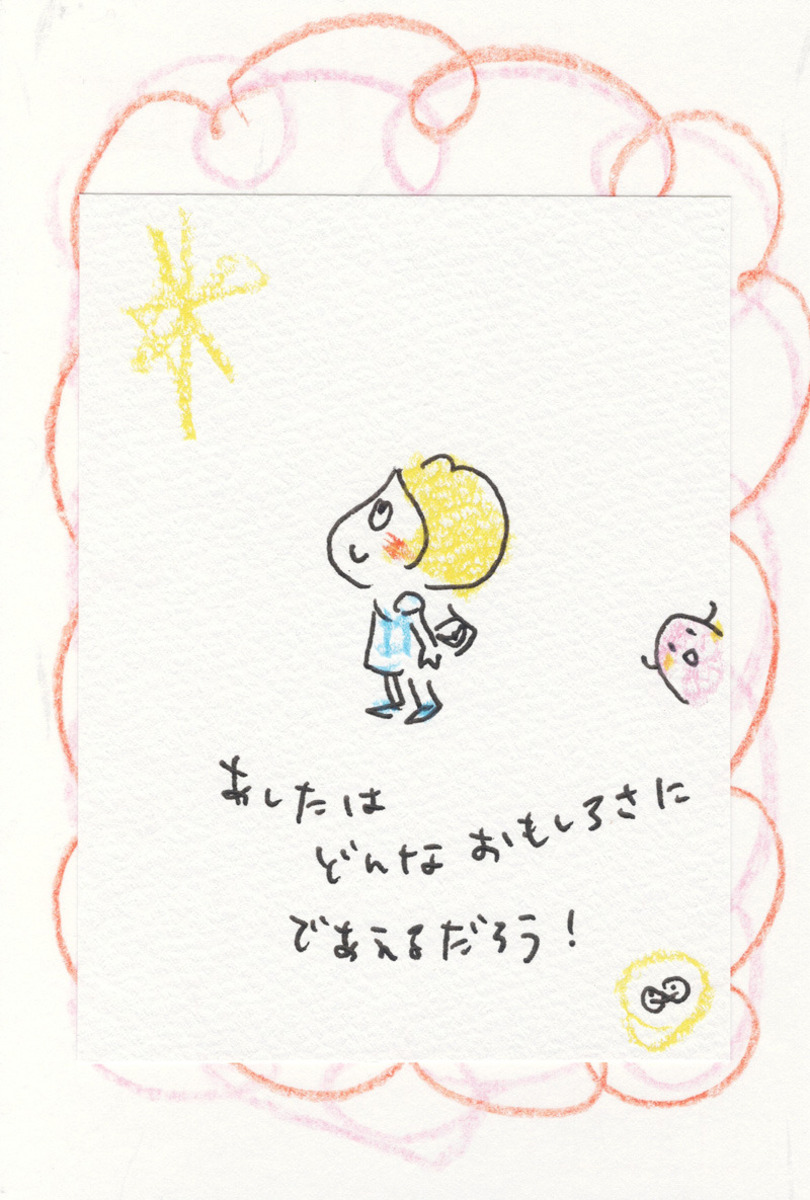 あしたは
どんな おもしろさに
であえるだろう!